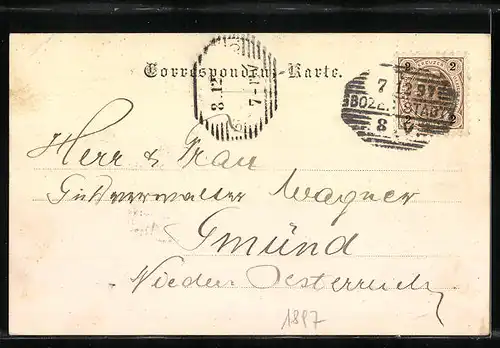 Correspondenz-Karte.
KREUZER
2 2
7 12 97
BOZEN STADT
8 V
8.12
7-V
Herr & Frau
Gutsverwalter Wagner
Gmünd
Nieder Oesterreich
1897